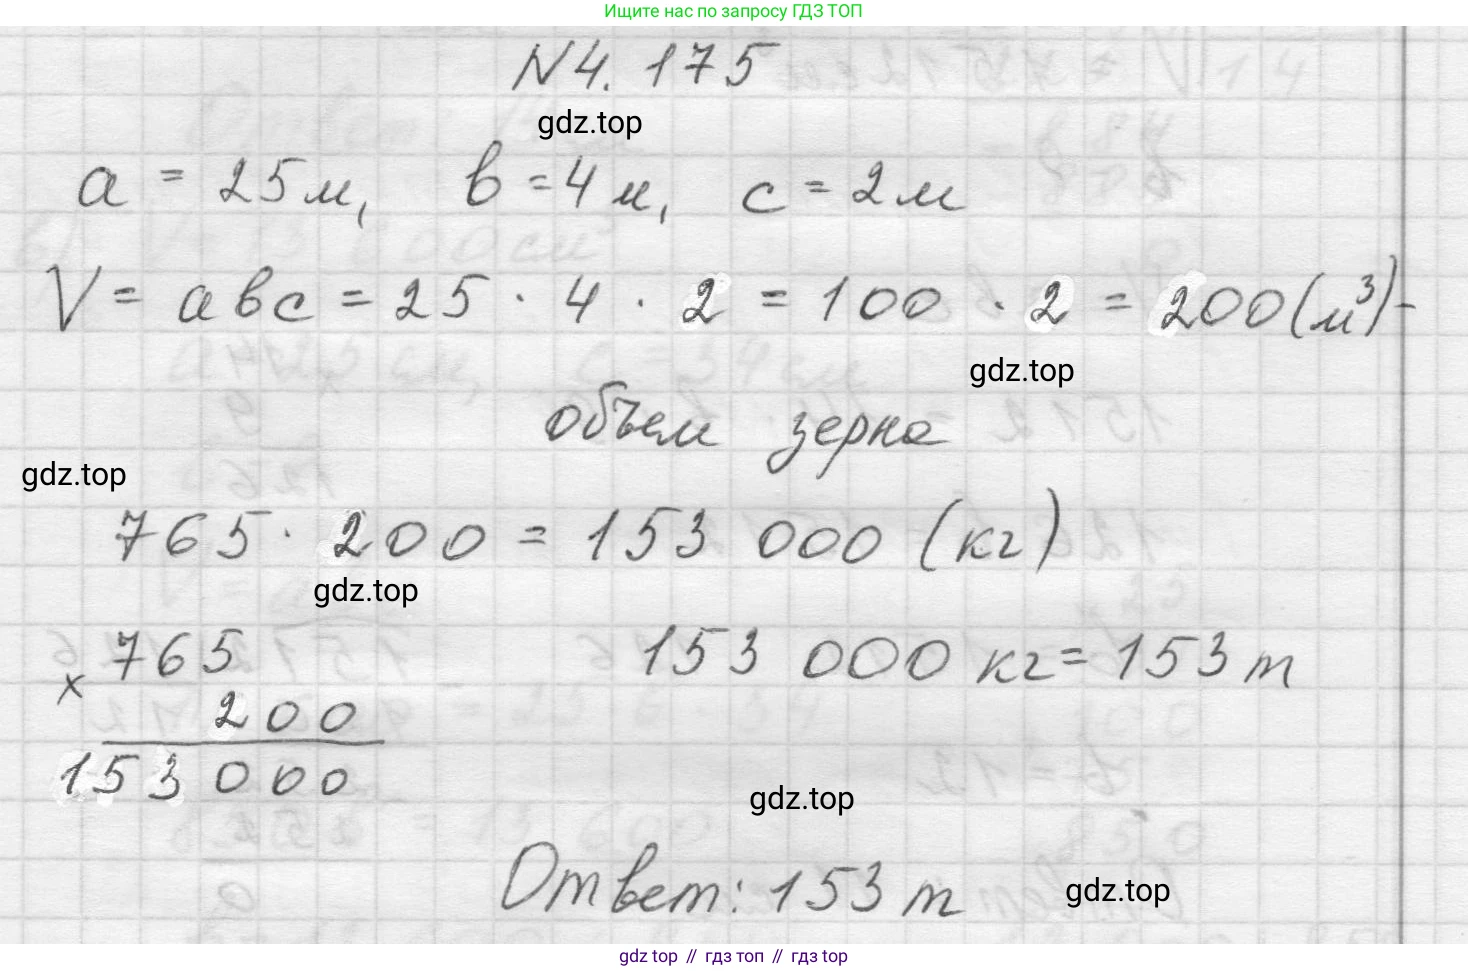 Ищите нас по запросу ГДЗ ТОП
N4.175
gdz.top
a = 25 м, в = 4 м, с = 2 м
V = авс = 25 · 4 · 2 = 100 · 2 = 200 (м³) -
gdz.top
объем зерна
gdz.top
765 · 200 = 153 000 (кг)
gdz.top
× 765
153 000 кг = 153 т
200
153 000
gdz.top
Ответ: 153 т
gdz.top
gdz top // гдз топ // гдз top